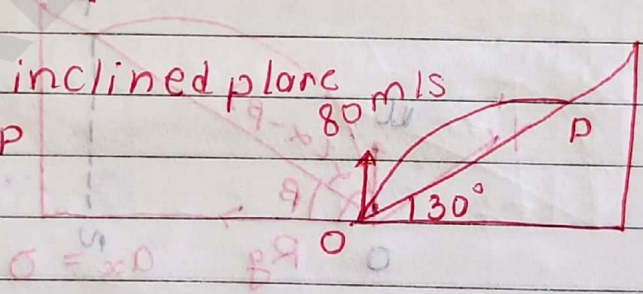 inclined plane
80 m/s
P
P
30°
O